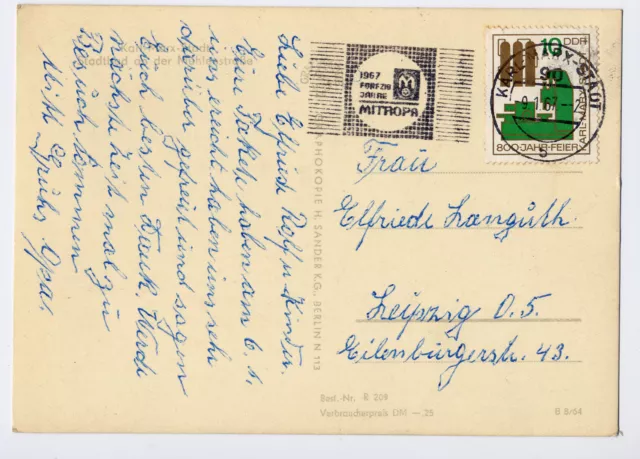 Karl-Marx-Stadt
Stadtbad an der Mühlenstraße
Liebe Elfriede Rolf u. Kinder.
Eure Pakete haben am 6. 1.
uns erreicht haben uns sehr
darüber gefreut und sagen
Euch besten Dank. Werde
nächste Zeit mal zu
Besuch kommen
Mit Gruß Opa.
PHOKOPIE H. SANDER K.G., BERLIN N 113
1967
FÜNFZIG
JAHRE
MITROPA
10 DDR
800-JAHR-FEIER
KARL-MARX-STADT
KARL-MARX-STADT
90
9.1.67
Frau
Elfriede Langûth
Leipzig O. 5.
Eilenburgerstr. 43.
Best.-Nr. R 209
Verbraucherpreis DM —.25
B 8/64